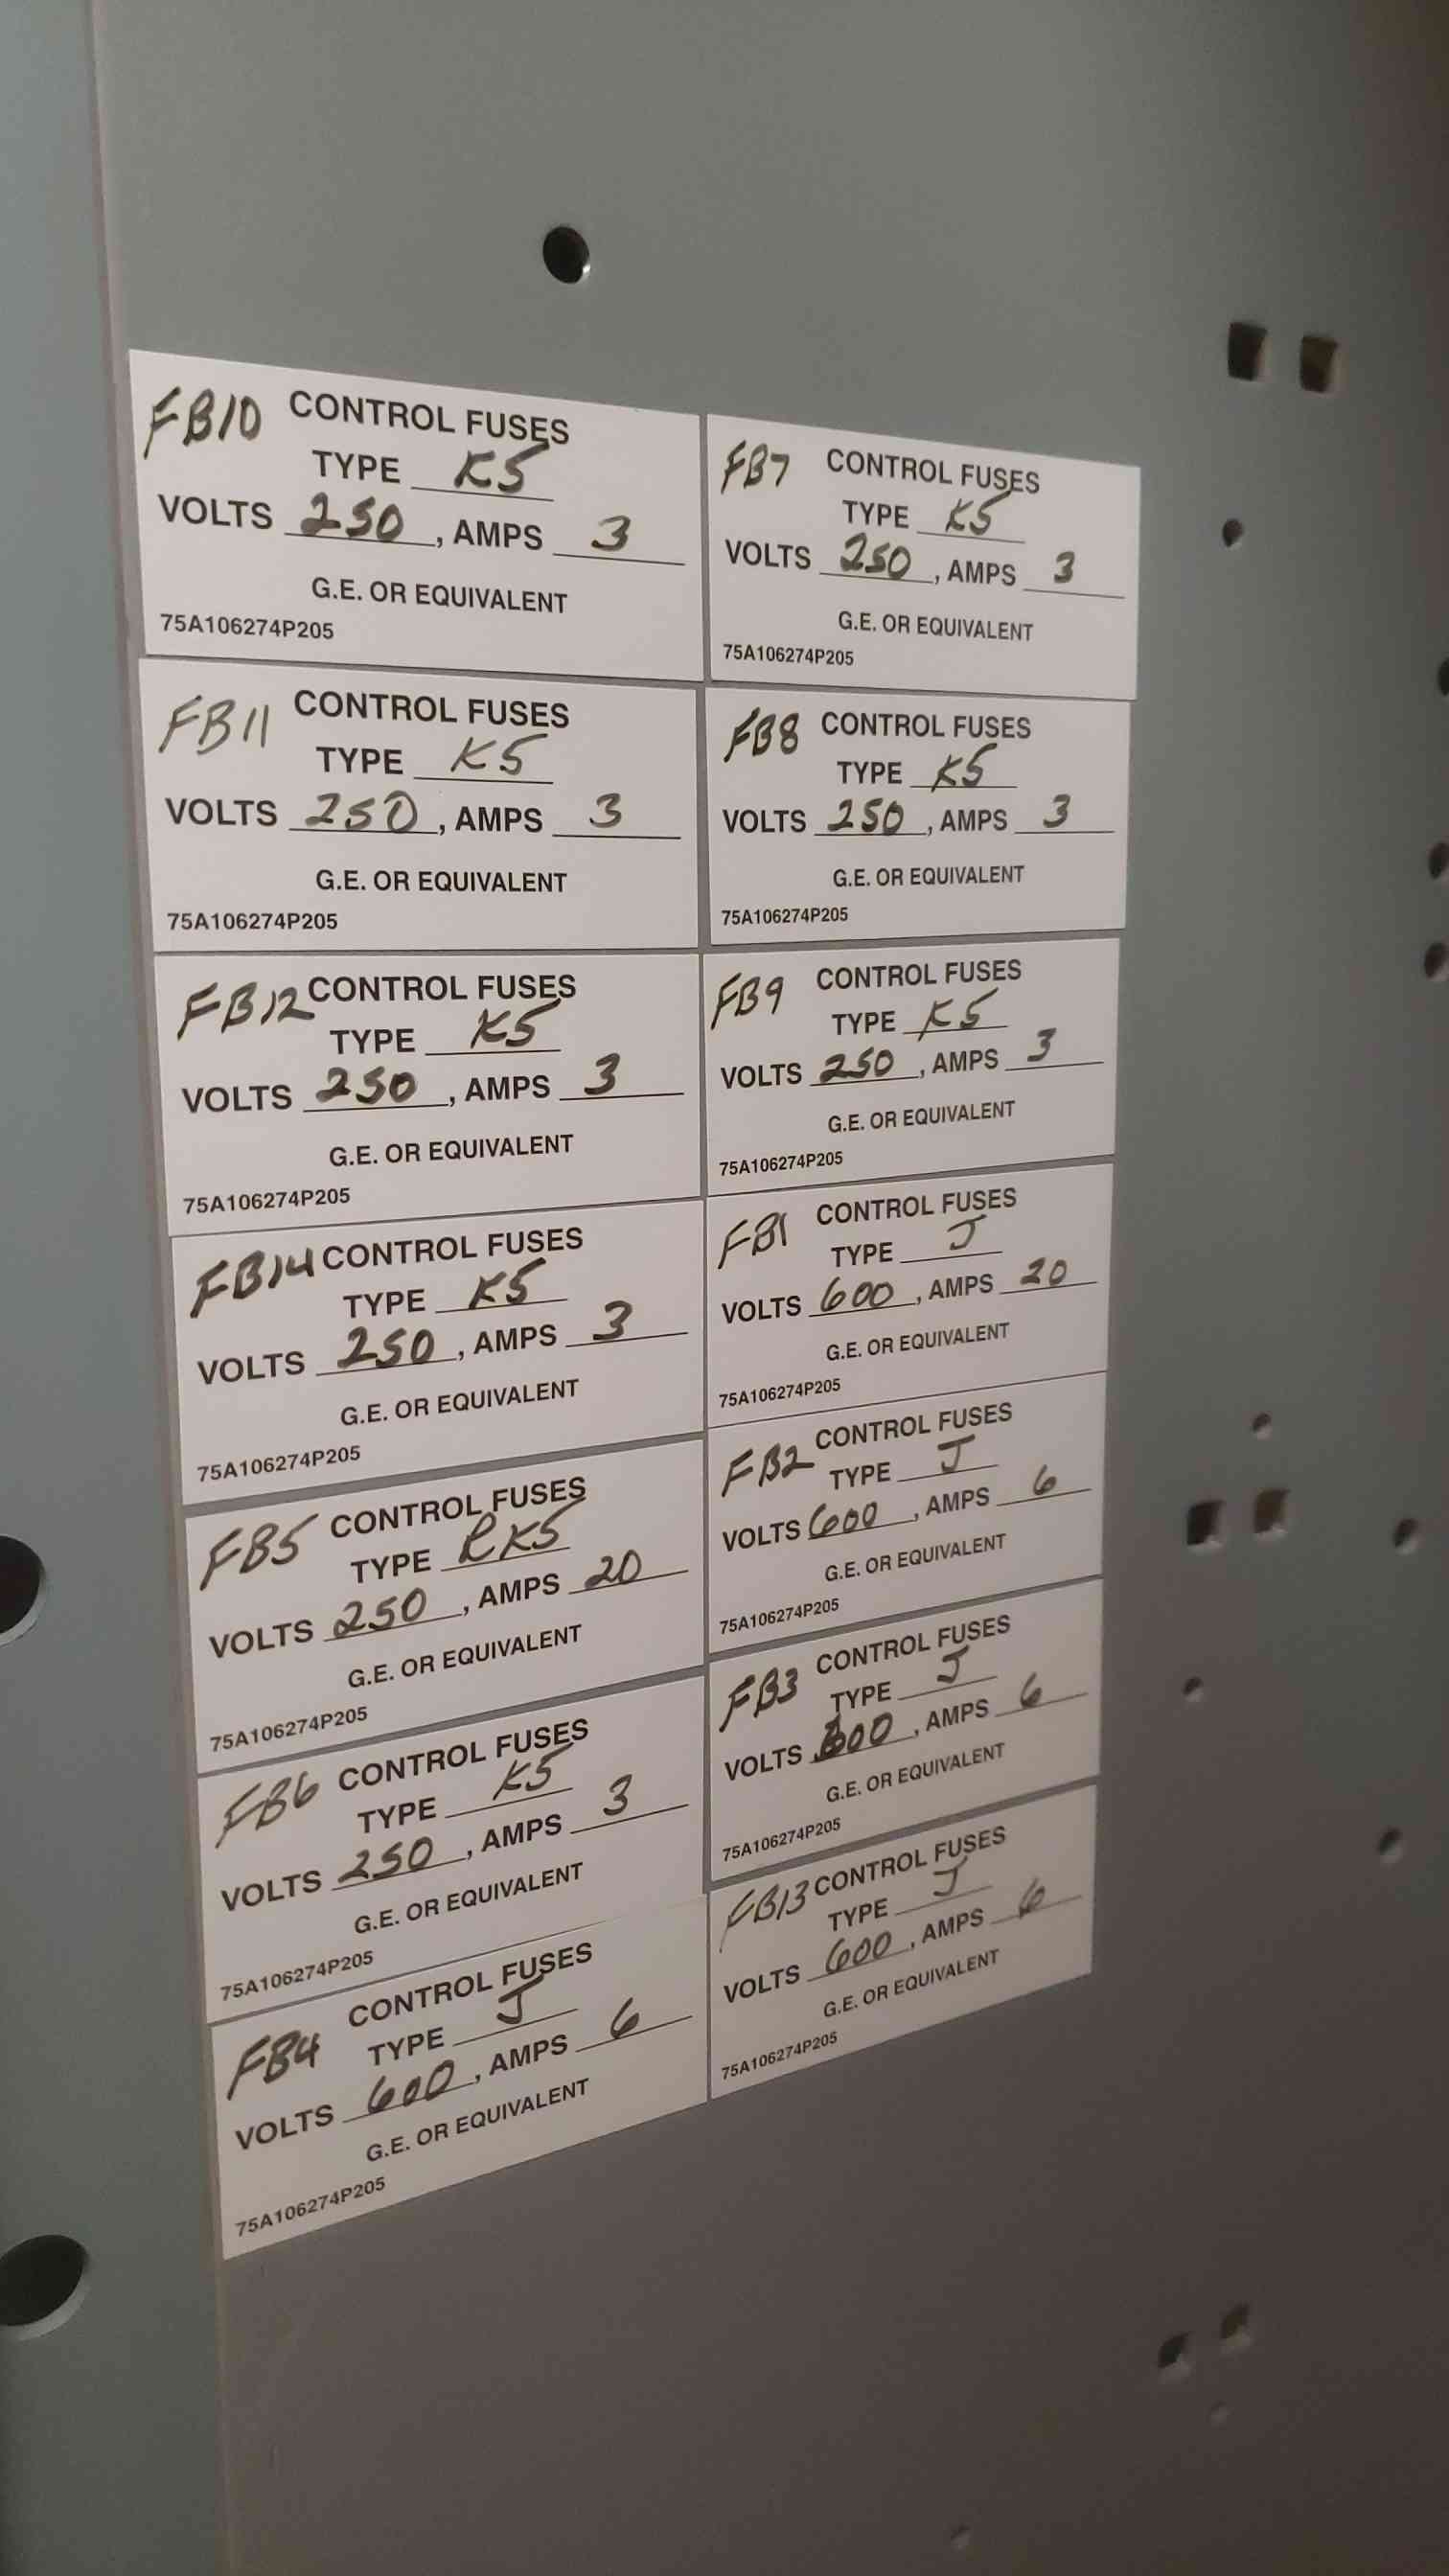 FB10 CONTROL FUSES
TYPE K5
VOLTS 250, AMPS 3
G.E. OR EQUIVALENT
75A106274P205
FB11 CONTROL FUSES
TYPE K5
VOLTS 250, AMPS 3
G.E. OR EQUIVALENT
75A106274P205
FB12 CONTROL FUSES
TYPE K5
VOLTS 250, AMPS 3
G.E. OR EQUIVALENT
75A106274P205
FB14 CONTROL FUSES
TYPE K5
VOLTS 250, AMPS 3
G.E. OR EQUIVALENT
75A106274P205
FB5 CONTROL FUSES
TYPE RK5
VOLTS 250, AMPS 20
G.E. OR EQUIVALENT
75A106274P205
FB6 CONTROL FUSES
TYPE K5
VOLTS 250, AMPS 3
G.E. OR EQUIVALENT
75A106274P205
FB4 CONTROL FUSES
TYPE J
VOLTS 600, AMPS 6
G.E. OR EQUIVALENT
75A106274P205
FB7 CONTROL FUSES
TYPE K5
VOLTS 250, AMPS 3
G.E. OR EQUIVALENT
75A106274P205
FB8 CONTROL FUSES
TYPE K5
VOLTS 250, AMPS 3
G.E. OR EQUIVALENT
75A106274P205
FB9 CONTROL FUSES
TYPE K5
VOLTS 250, AMPS 3
G.E. OR EQUIVALENT
75A106274P205
FB1 CONTROL FUSES
TYPE J
VOLTS 600, AMPS 20
G.E. OR EQUIVALENT
75A106274P205
FB2 CONTROL FUSES
TYPE J
VOLTS 600, AMPS 6
G.E. OR EQUIVALENT
75A106274P205
FB3 CONTROL FUSES
TYPE J
VOLTS 600, AMPS 6
G.E. OR EQUIVALENT
75A106274P205
FB13 CONTROL FUSES
TYPE J
VOLTS 600, AMPS 6
G.E. OR EQUIVALENT
75A106274P205